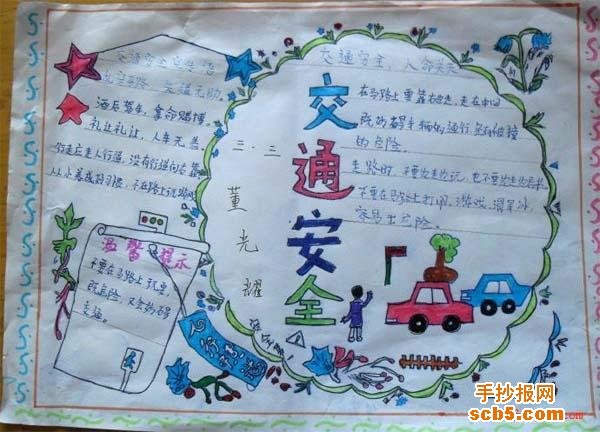 交通安全宣传语
礼让互助。
酒后驾车,拿命赌博
礼让礼让,人车无恙
行走应走人行道,没有行道向右靠
从小养成好习惯,不在路上玩
温馨提示
不要在马路上玩耍,
既危险,又会妨碍
交通。
三·三
董光耀
交通安全
交通安全,人命关天
在马路上要靠右走,走在中间
既妨碍车辆的通行,
的危险。
走路时,不要边走边玩,也不要边走边看书,
不要在马路上打闹、游戏、滑旱冰,
容易出危险。
手抄报网
scb5.com